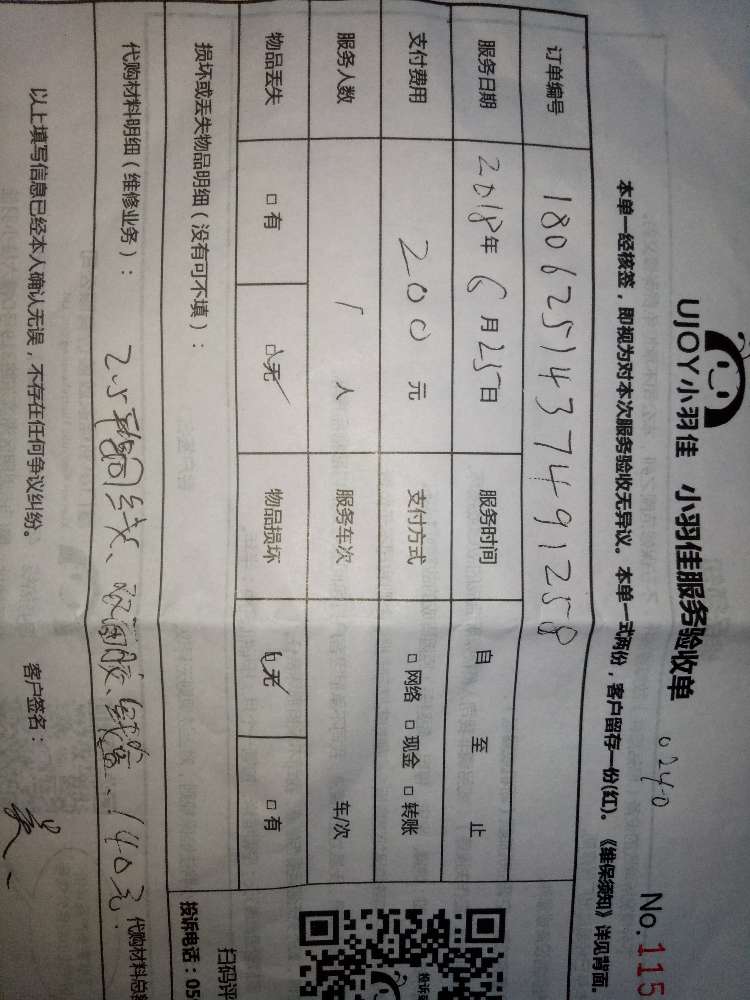 UJOY小羽佳 小羽佳服务验收单 0240 No.115
本单一经核签，即视为对本次服务验收无异议。本单一式两份，客户留存一份(红)。《维保须知》详见背面。
订单编号 1806251437491258
服务日期 2018年6月25日 服务时间 自 至 止
支付费用 200元 支付方式 □网络 □现金 □转账
服务人数 1人 服务车次 车/次
物品丢失 □有 □无 物品损坏 □无 □有
损坏或丢失物品明细（没有可不填）：
扫码评
投诉电话：05
代购材料明细（维修业务）： 2.5平方铜线、双面胶、线槽、140元. 代购材料总
以上填写信息已经本人确认无误，不存在任何争议纠纷。 客户签名：